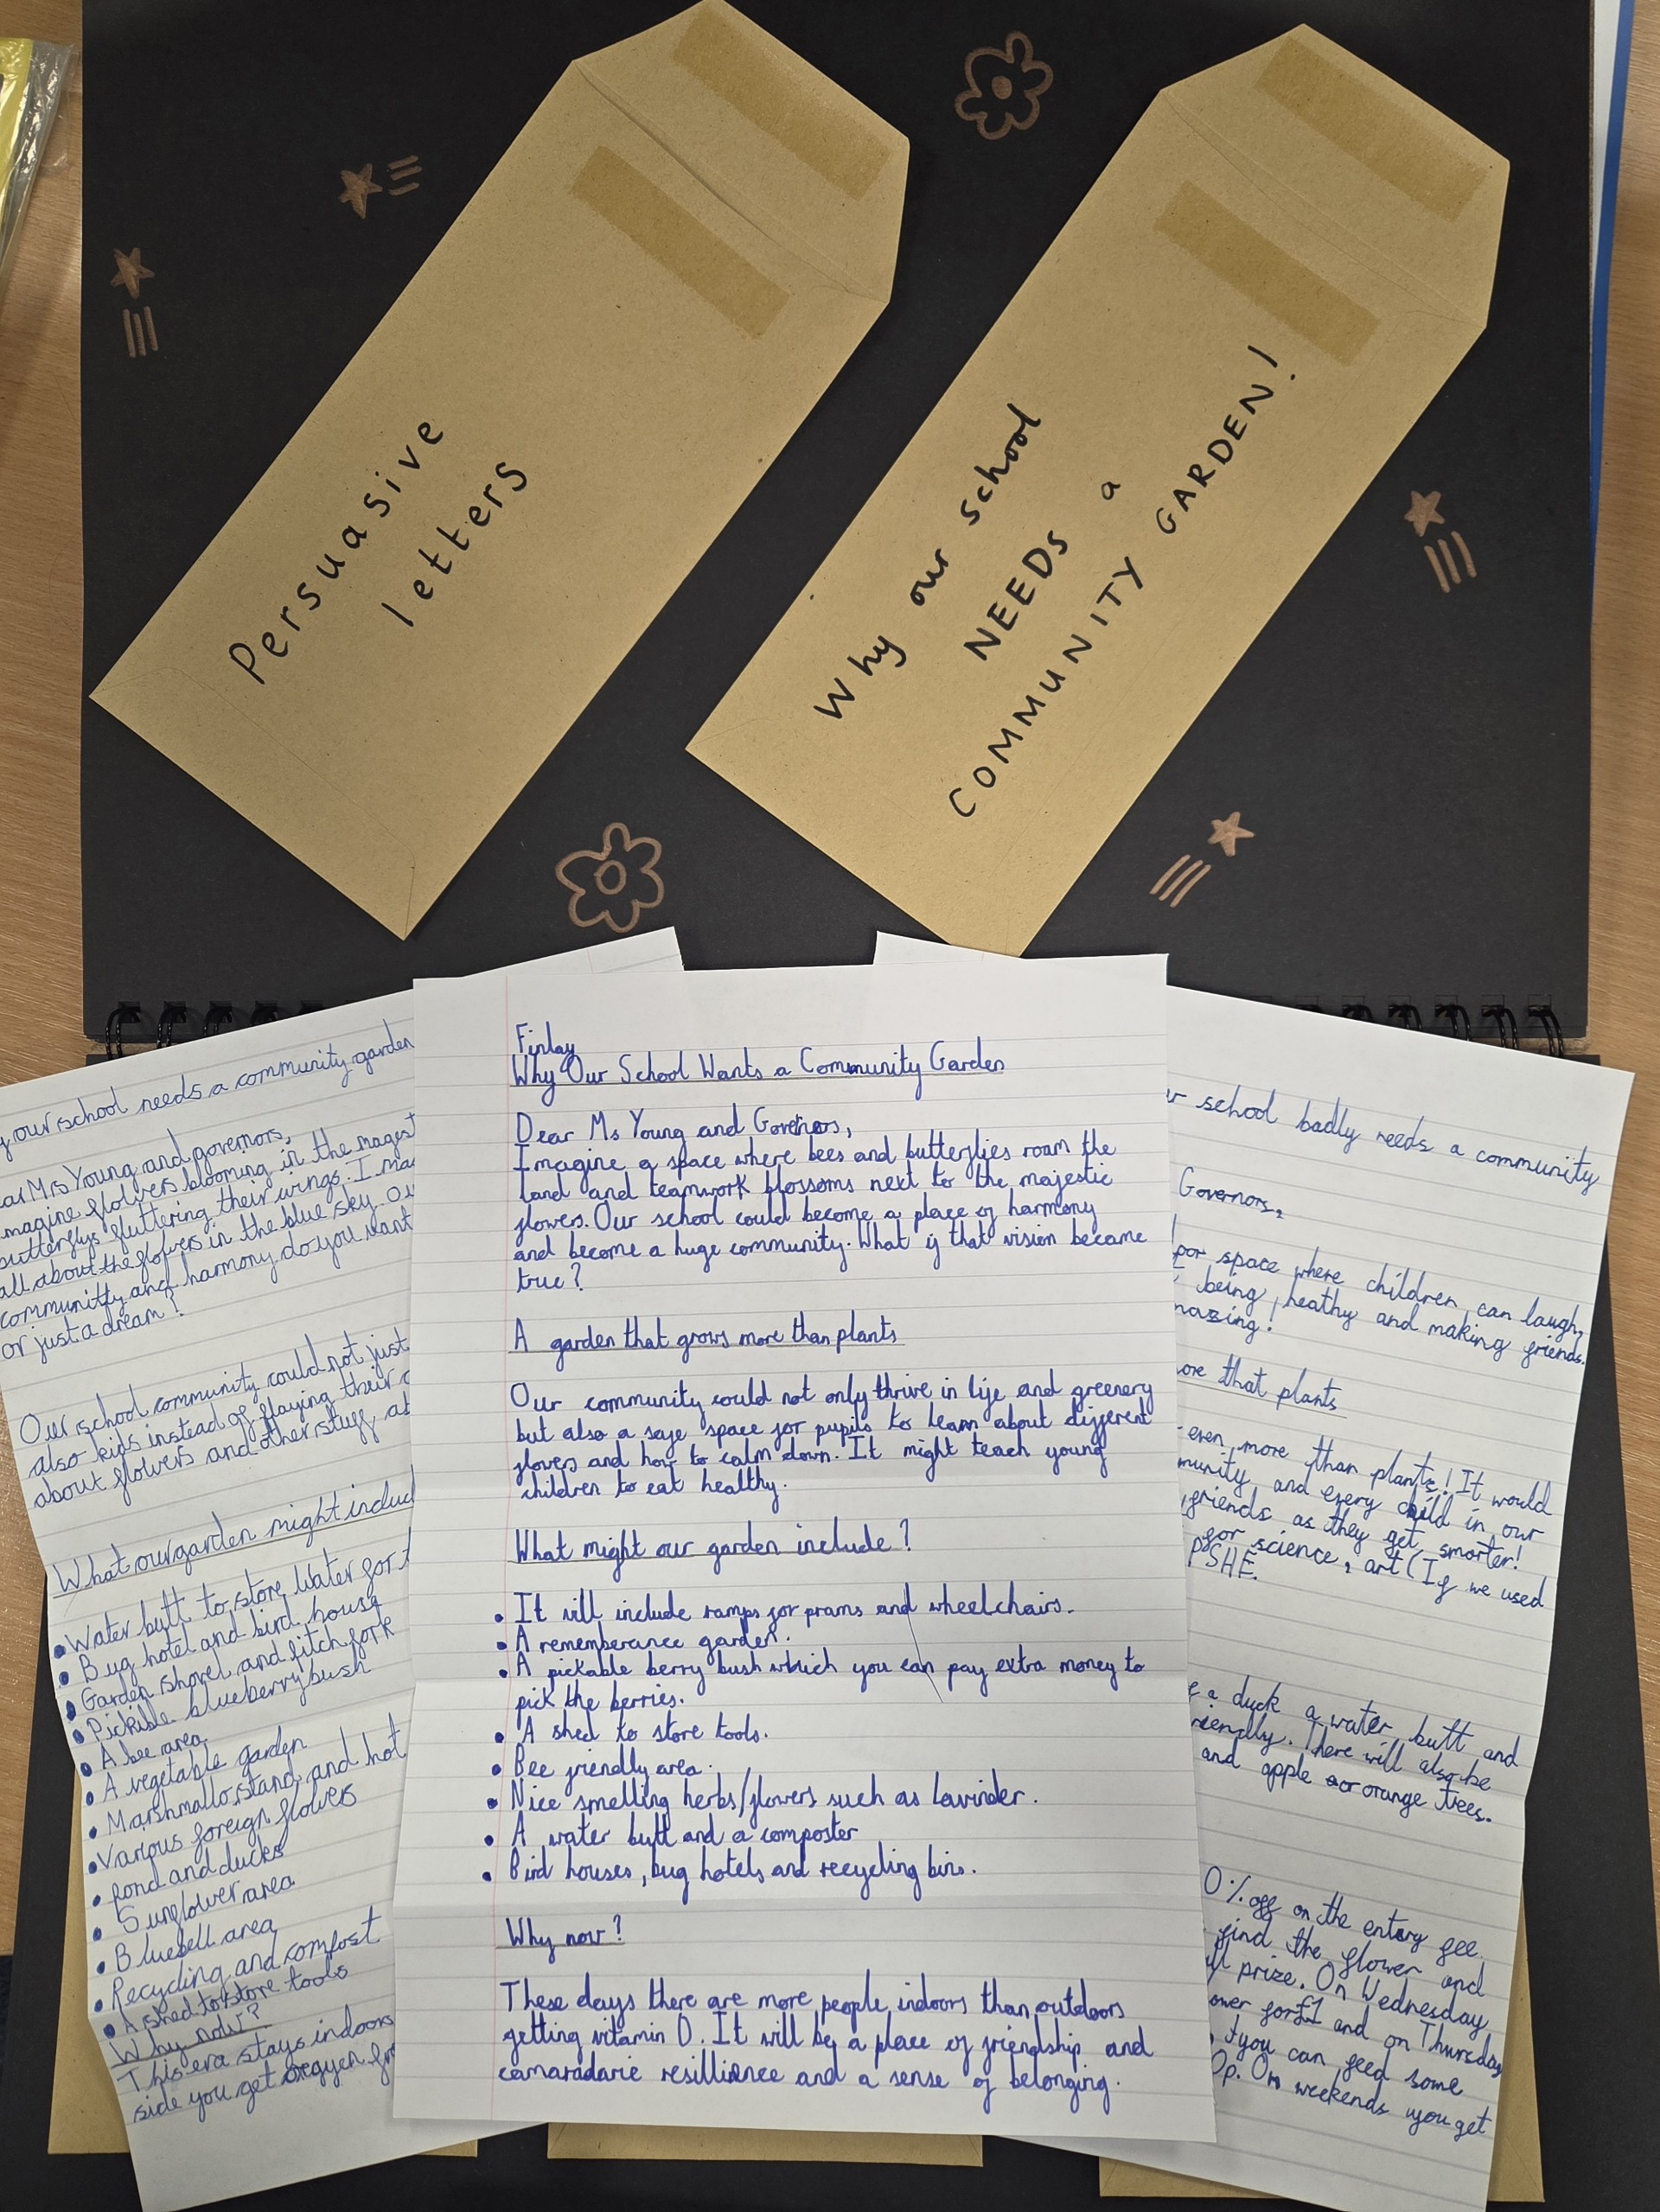 Persuasive
letters
Why our school
NEEDS a
COMMUNITY GARDEN!
our school needs a community garden
Mrs Young and governors,
magine flowers blooming in the
butterflys fluttering their wings. I
all about the flowers in the blue sky.
community and harmony do you want
or just a dream?
Our school community could not just
also kids instead of playing their
about flowers and other stuff
What our garden might
Water butt to store water for
Bug hotel and bird house
Garden shovel and pitch fork
Pickible blueberry bush
A bee area
A vegetable garden
Marshmallo stand and hot
Various foreign flowers
pond and ducks
Sunflower area
Bluebell area
Recycling and compost
A shed to store tools
Why now?
This era stays indoors
side you get oxgyen
Finlay
Why Our School Wants a Community Garden
Dear Ms Young and Governors,
Imagine a space where bees and butterflies roam the
land and teamwork blossoms next to the majestic
flowers. Our school could become a place of harmony
and become a huge community. What if that vision became
true?
A garden that grows more than plants
Our community could not only thrive in life and greenery
but also a safe space for pupils to learn about different
flovers and how to calm down. It might teach young
children to eat healthy.
What might our garden include?
• It will include ramps for prams and wheelchairs.
• A rememberance garden.
• A pickable berry bush which you can pay extra money to
pick the berries.
• A shed to store tools.
• Bee friendly area.
• Nice smelling herbs/flowers such as lavinder.
• A water butt and a composter
• Bird houses, bug hotels and recycling bins.
Why now?
These days there are more people indoors than outdoors
getting vitamin D. It will be a place of friendship and
camaradarie resillience and a sense of belonging.
school badly needs a community
Governors,
space where children can laugh,
being heathy and making friends.
mazing!
more that plants
even more than plants! It would
munity and every child in our
friends as they get smarter!
for science, art (If we used
PSHE.
a duck a water butt and
riendly. There will also be
and apple or orange trees.
0% off on the entery fee.
find the flower and
prize. On Wednesday
ower for £1 and on Thursday
you can feed some
0p. On weekends you get